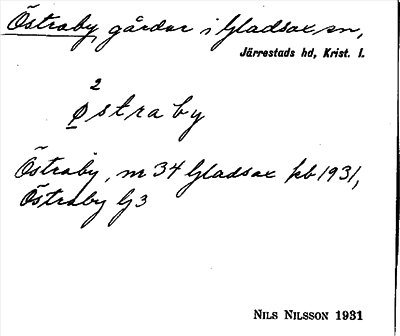 Östraby gårdar i Gladsax sn,
Järrestads hd, Krist. l.
2
østraby
Östraby, nr 34 Gladsax kb 1931,
Östraby G 3
NILS NILSSON 1931